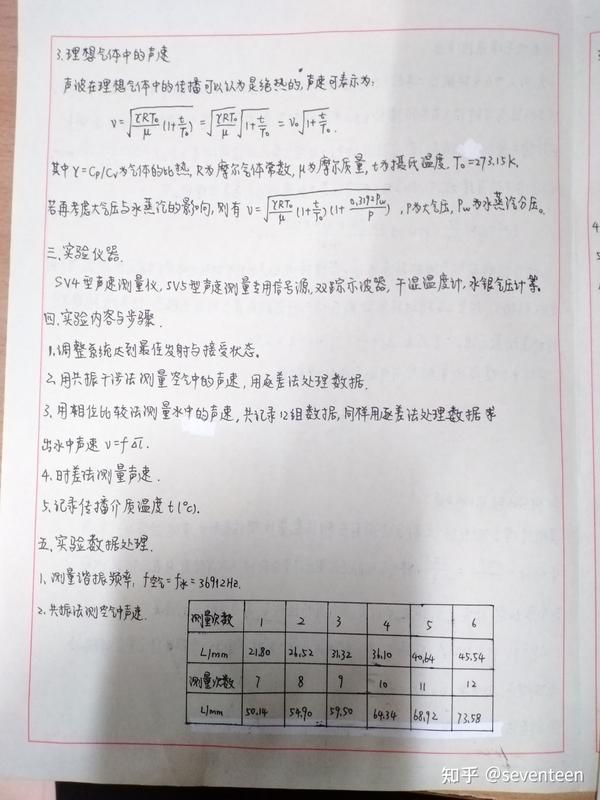 3.理想气体中的声速
声波在理想气体中的传播可以认为是绝热的,声速可表示为:
v=√(γRT₀/μ (1+t/T₀)) = √(γRT₀/μ) √(1+t/T₀) = v₀√(1+t/T₀).
其中γ=Cp/Cv为气体的比热,R为摩尔气体常数,μ为摩尔质量,t为摄氏温度.T₀=273.15K.
若再考虑大气压与水蒸汽的影响,则有 v=√(γRT₀/μ (1+t/T₀)(1+0.3192Pw/P)),P为大气压,Pw为水蒸汽分压。
三.实验仪器.
SV4型声速测量仪,SV5型声速测量专用信号源,双踪示波器,干湿温度计,水银气压计等.
四.实验内容与步骤.
1.调整系统达到最佳发射与接受状态。
2.用共振干涉法测量空气中的声速,用逐差法处理数据.
3.用相位比较法测量水中的声速,共记录12组数据,同样用逐差法处理数据求
出水中声速
4.时差法测量声速.
5.记录传播介质温度t(℃).
五.实验数据处理.
1.测量谐振频率,f空气=f水=36912Hz.
2.共振法测空气中声速.
测量次数 1 2 3 4 5 6
L/mm 21.80 26.52 31.32 36.10 40.64 45.54
测量次数 7 8 9 10 11 12
L/mm 50.14 54.90 59.50 64.34 68.92 73.58
知乎 @seventeen